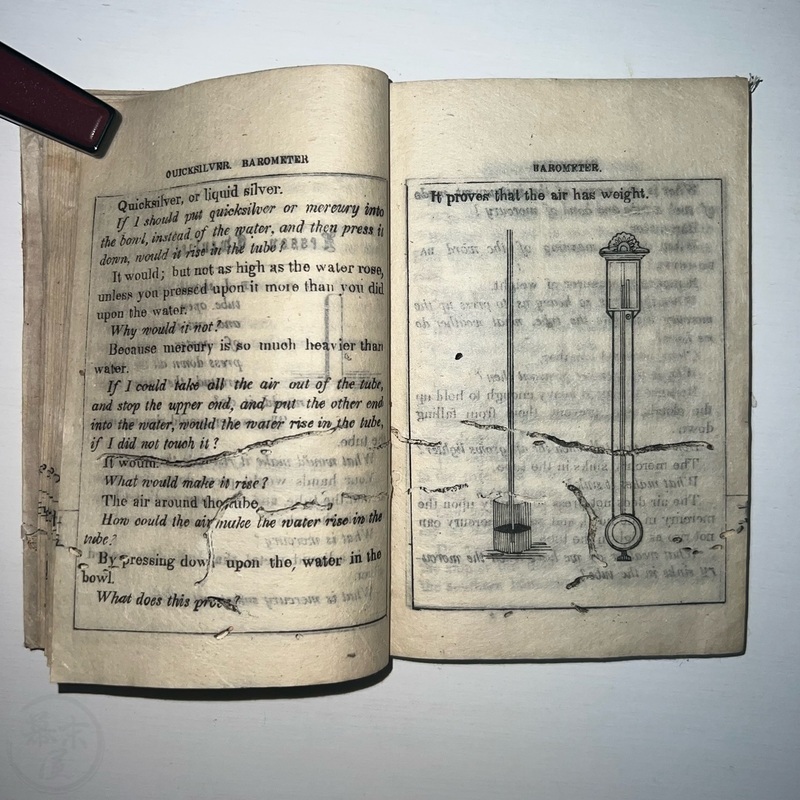 QUICKSILVER. BAROMETER
Quicksilver, or liquid silver.
If I should put quicksilver or mercury into
the bowl, instead of the water, and then press it
down, would it rise in the tube?
It would; but not as high as the water rose,
unless you pressed upon it more than you did
upon the water.
Why would it not?
Because mercury is so much heavier than
water.
If I could take all the air out of the tube,
and stop the upper end, and put the other end
into the water, would the water rise in the tube,
if I did not touch it?
It would.
What would make it rise?
The air around the tube.
How could the air make the water rise in the
tube?
By pressing down upon the water in the
bowl.
What does this prove?
BAROMETER.
It proves that the air has weight.